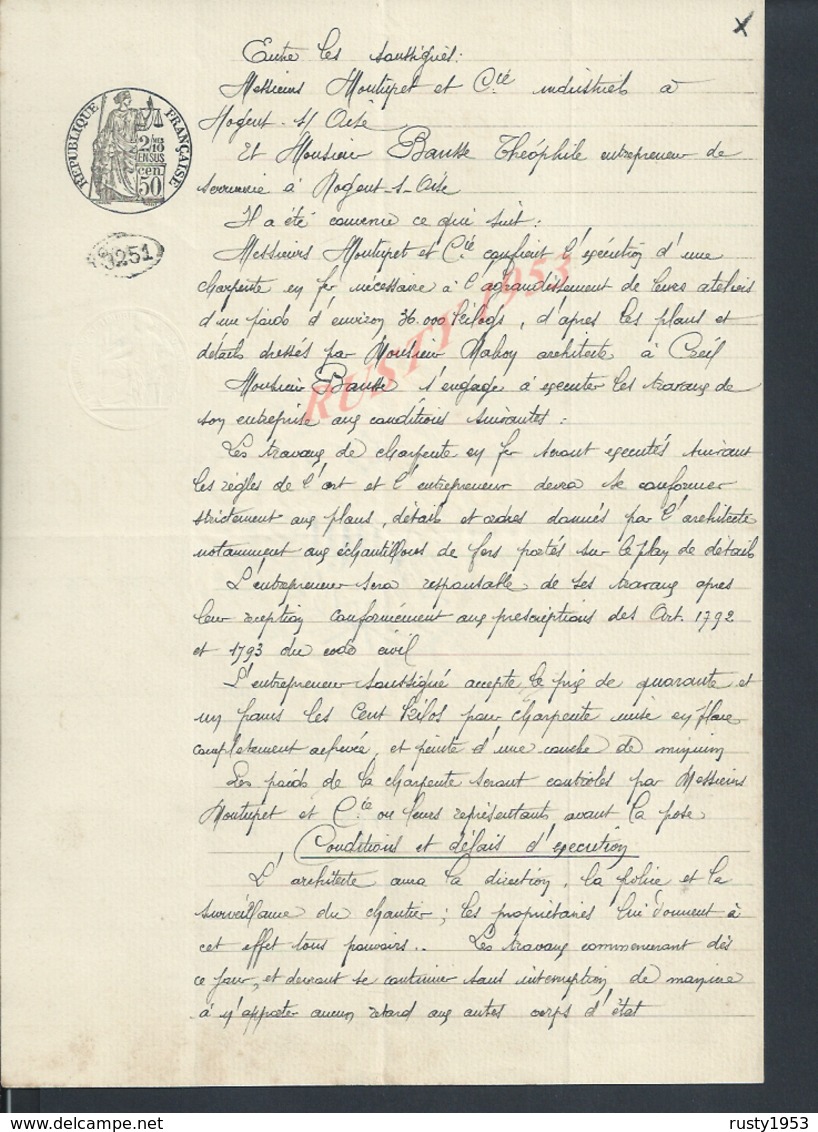 Entre les soussignés:
Messieurs Montupet et C.ie industriels à
Nogent-s/Oise
Et Monsieur Bausse Théophile entrepreneur de
serrurerie à Nogent-s-Oise
Il a été convenu ce qui suit:
Messieurs Montupet et C.ie confient l'exécution d'une
charpente en fer nécessaire à l'agrandissement de leurs ateliers
d'un poids d'environ 36.000 Kilogs, d'après les plans et
détails dressés par Monsieur architecte à Creil
Monsieur Bausse s'engage à exécuter les travaux de
son entreprise aux conditions suivantes:
Les travaux de charpente en fer seront exécutés suivant
les règles de l'art et l'entrepreneur devra se conformer
strictement aux plans, détails et ordres donnés par l'architecte
notamment aux échantillons de fers portés sur le plan de détails
L'entrepreneur sera responsable de ses travaux après
leur réception conformément aux prescriptions des Art. 1792
et 1793 du code civil
L'entrepreneur soussigné accepte le prix de quarante et
un francs les Cent Kilos pour Charpente mise en place
complètement achevée, et peinte d'une couche de minium
Les poids de la charpente seront contrôlés par Messieurs
Montupet et C.ie ou leurs représentants avant la pose
Conditions et délais d'exécution
L'architecte aura la direction, la police et la
surveillance du chantier; les propriétaires lui donnent à
cet effet tous pouvoirs.. Les travaux commenceront dès
ce jour, et devront se continuer sans interruption de manière
à n'apporter aucun retard aux autres corps d'état
RÉPUBLIQUE FRANÇAISE
2/10
EN SUS
50 cen.
3251
RUSTY 1953
rusty1953